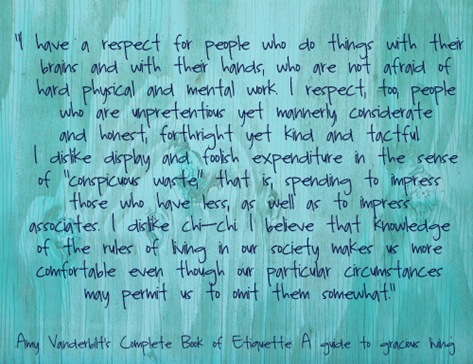 "I have a respect for people who do things with their
brains and with their hands, who are not afraid of
hard physical and mental work. I respect, too, people
who are unpretentious yet mannerly, considerate
and honest, forthright yet kind and tactful
I dislike display and foolish expenditure in the sense
of "conspicuous waste," that is, spending to impress
those who have less, as well as to impress
associates. I dislike chi-chi. I believe that knowledge
of the rules of living in our society makes us more
comfortable even though our particular circumstances
may permit us to omit them somewhat."
Amy Vanderbilt's Complete Book of Etiquette A guide to gracious living